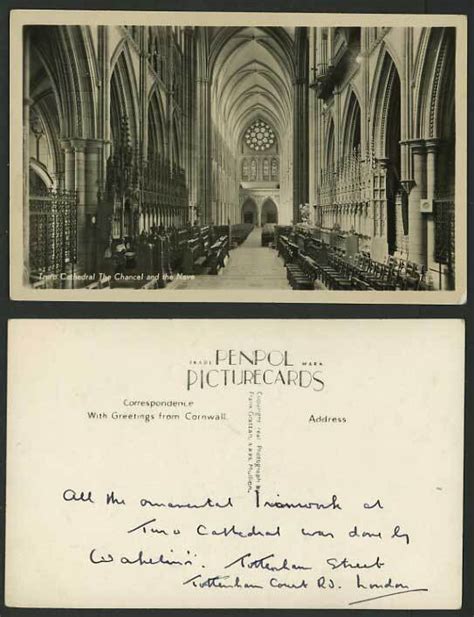 Truro Cathedral The Chancel and the Nave
TRADE PENPOL MARK
PICTURECARDS
Correspondence
With Greetings from Cornwall.
Address
Copyright real Photograph by
Frank Grattan,
Mullion.
All the ornamental Ironwork at
Truro Cathedral was done by
Wakelin's. Tottenham Street
Tottenham Court Rd. London